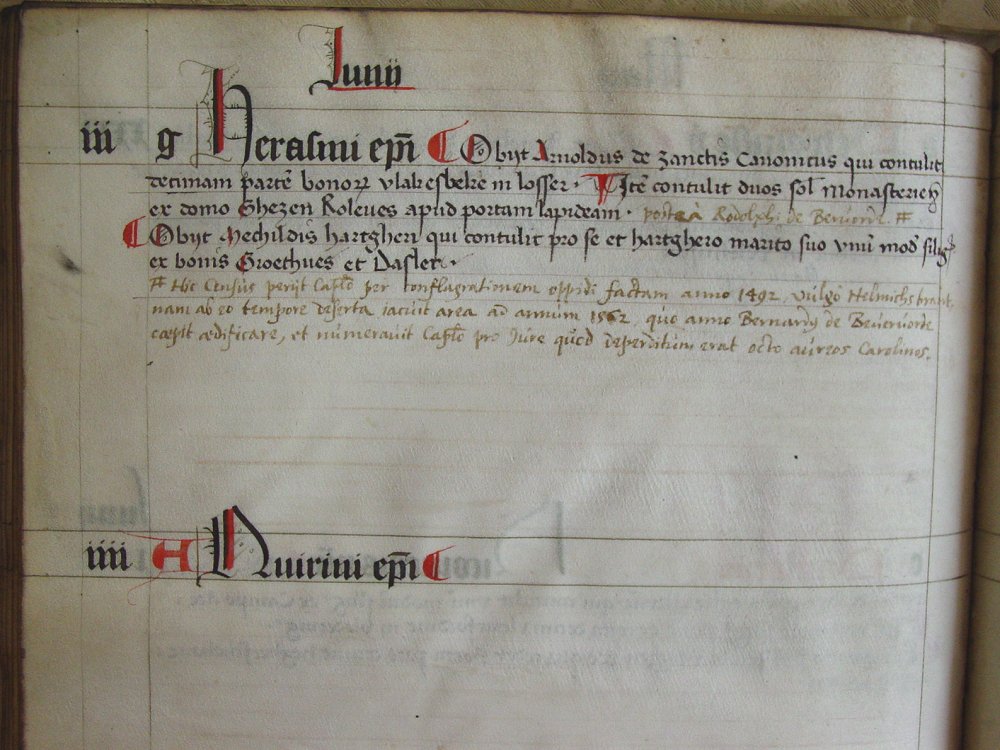 Junii
iii g Herasmi ep̄i Obijt Arnoldus de zanctis Canonicus qui contulit
decimam partē bonorꝝ vlakesbeke in losser. Itē contulit duos sol monasterieñ
ex domo Ghezen Roleues apud portam lapideam. postea Rodolphi de Beruorde #
Obijt Mechildis hartgheri qui contulit pro se et hartghero marito suo vnū mod siligꝭ
ex bonis Groethues et Dasler.
# Hic Census perijt Caplo per conflagrationem oppidi factam anno 1492, vulgo Helmichs brant
nam ab eo tempore deserta iacuit area ad annum 1562, quo anno Bernardꝰ de Beueruorde
cœpit ædificare, et numerauit Caplo pro Jure quod deperditum erat octo aureos Carolinos.
iiii A Quirini ep̄i